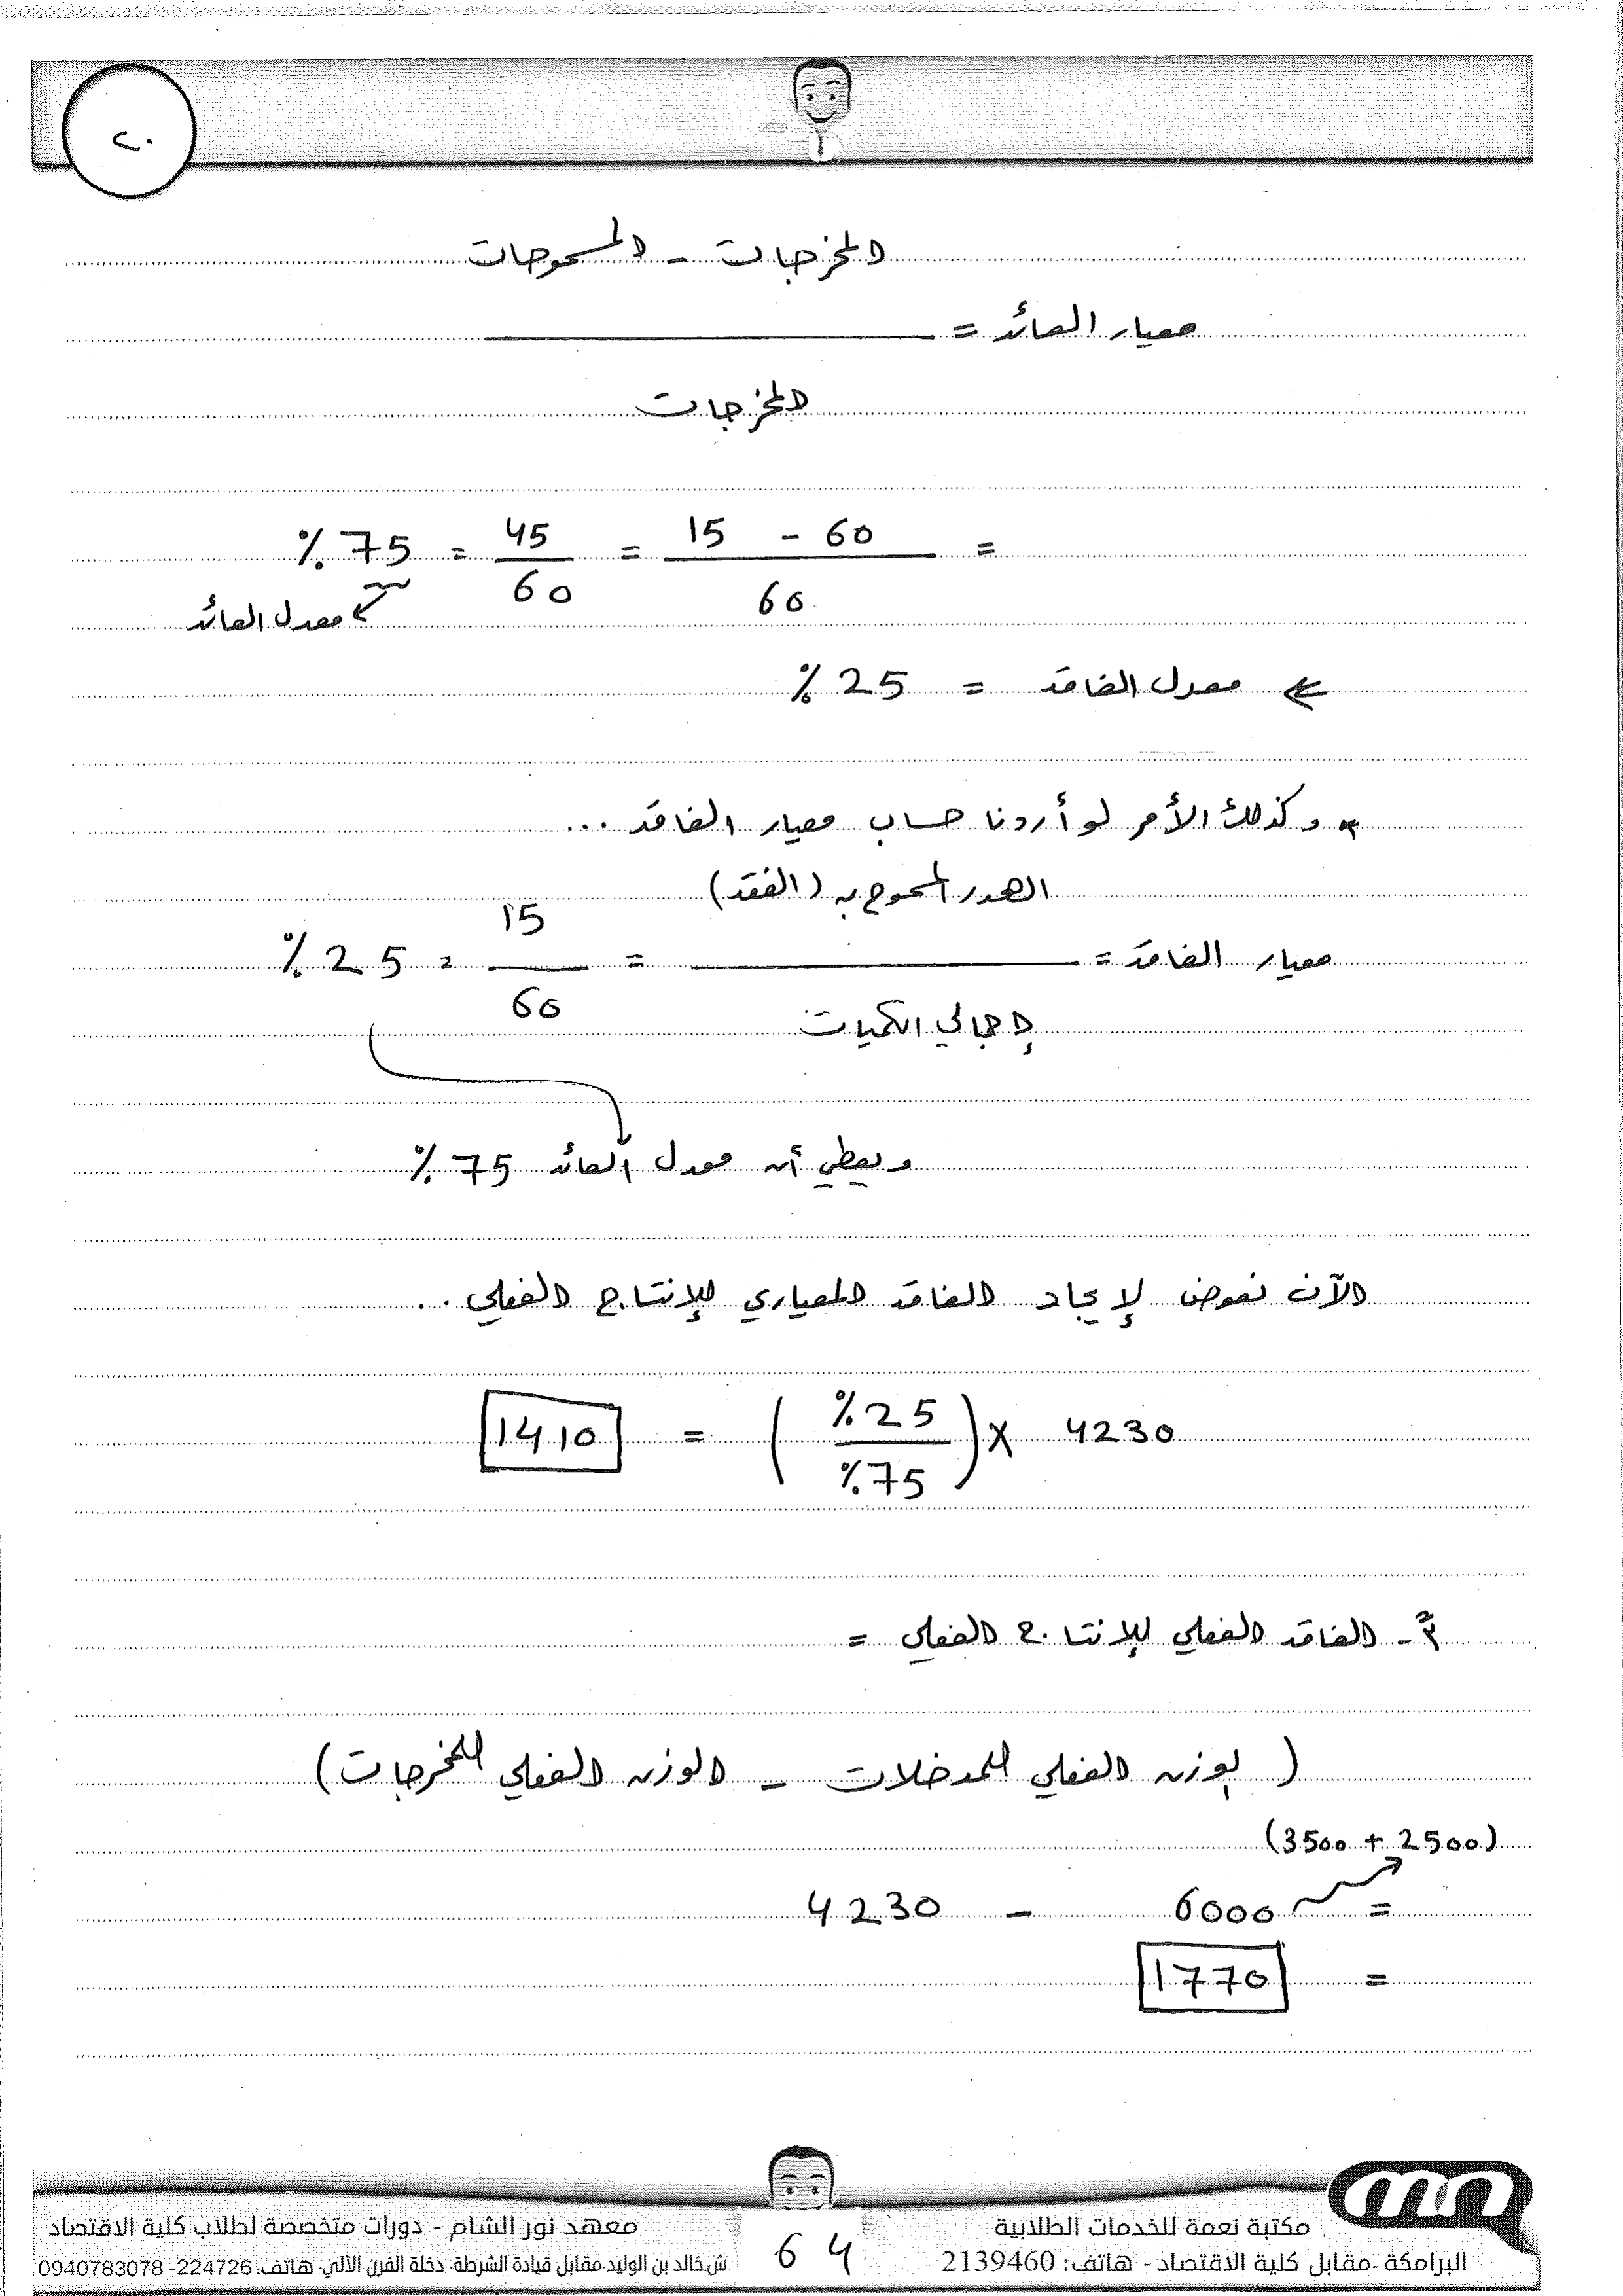 ٢٠
المخرجات - المسموحات
معيار العائد = ــــــــــــــــ
المخرجات
= 60 - 15 / 60 = 45 / 60 = 75 %
معدل العائد
معدل الفاقد = 25 %
وكذلك الأمر لو أردنا حساب معيار الفاقد ...
الهدر المسموح به (الفقد)
معيار الفاقد = ــــــــــــــــ = 15 / 60 = 25 %
إجمالي الكميات
ويعطي أن معدل العائد 75 %
الآن نعوض لإيجاد الفاقد المعياري للإنتاج الفعلي ..
4230 × (25% / 75%) = 1410
٣ً- الفاقد الفعلي للإنتاج الفعلي =
(الوزن الفعلي للمدخلات - الوزن الفعلي للمخرجات)
(3500 + 2500)
= 6000 - 4230
= 1770
مكتبة نعمة للخدمات الطلابية
البرامكة -مقابل كلية الاقتصاد - هاتف: 2139460
64
معهد نور الشام - دورات متخصصة لطلاب كلية الاقتصاد
ش.خالد بن الوليد-مقابل قيادة الشرطة- دخلة الفرن الآلي- هاتف: 224726- 0940783078